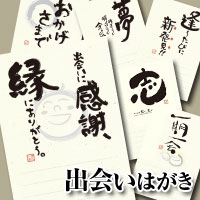 おかげ
さまで
夢
逢
うたびに
新発見!!
縁
にありがとう。
出会いに
感謝、
志
一期一会
出会いはがき